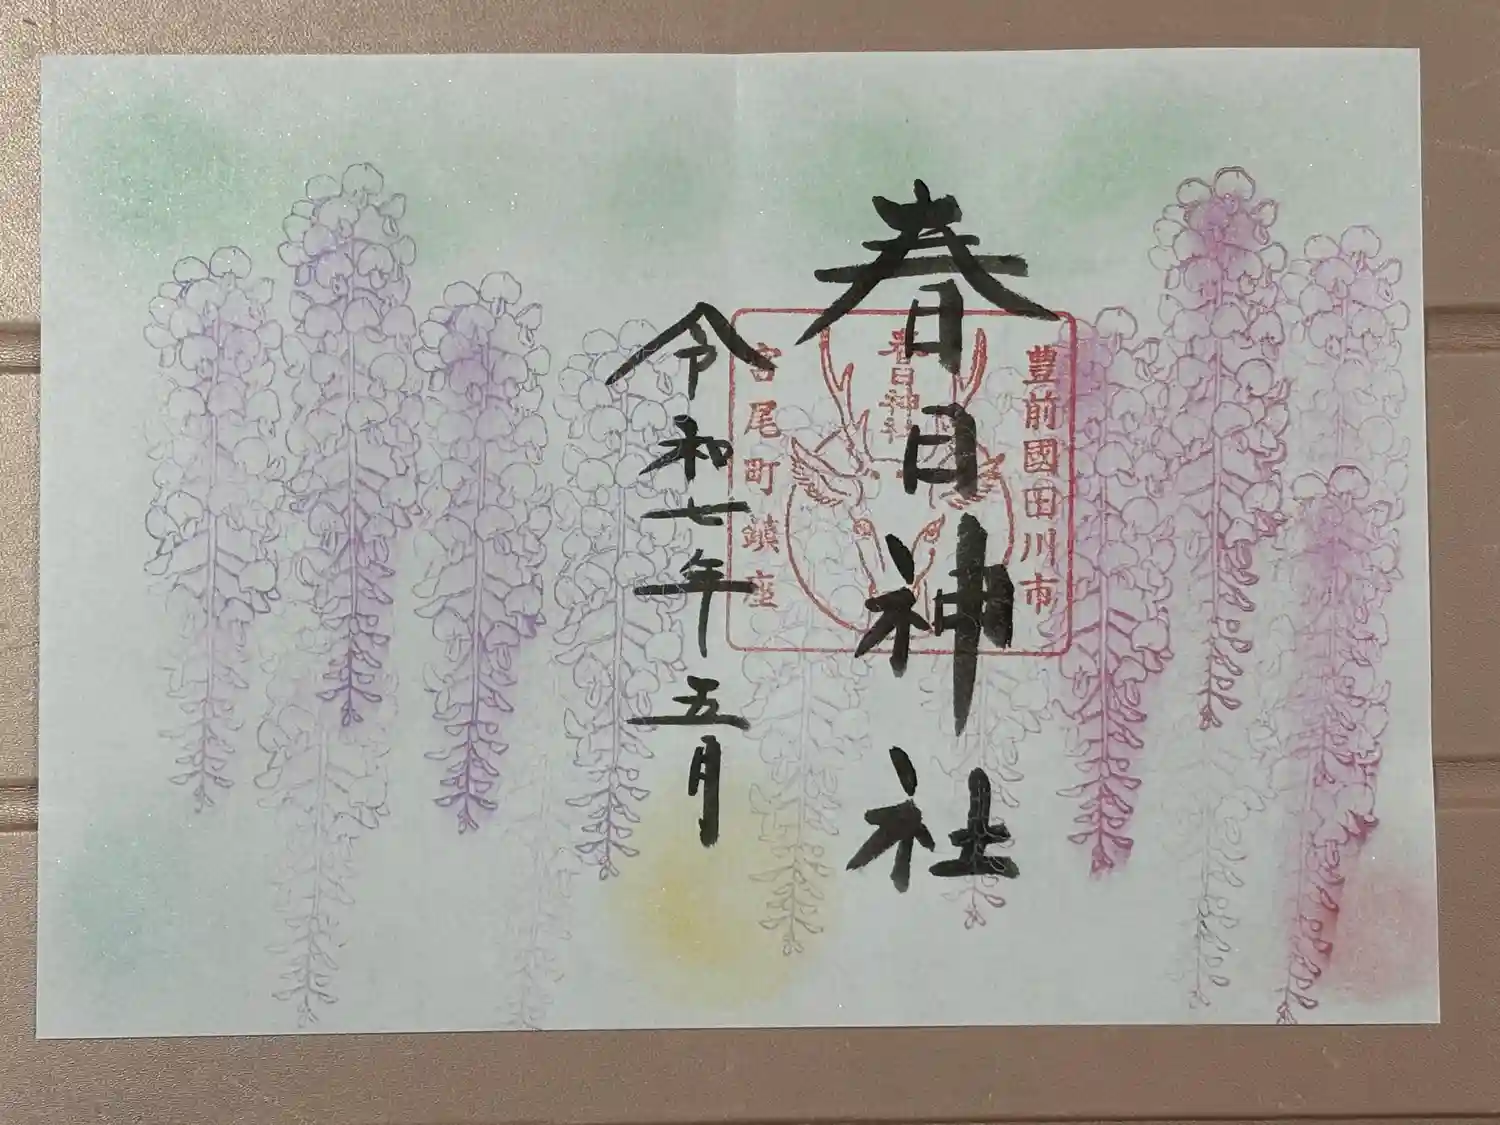 春日神社
豊前國田川市
春日神社
宮尾町鎮座
令和七年五月